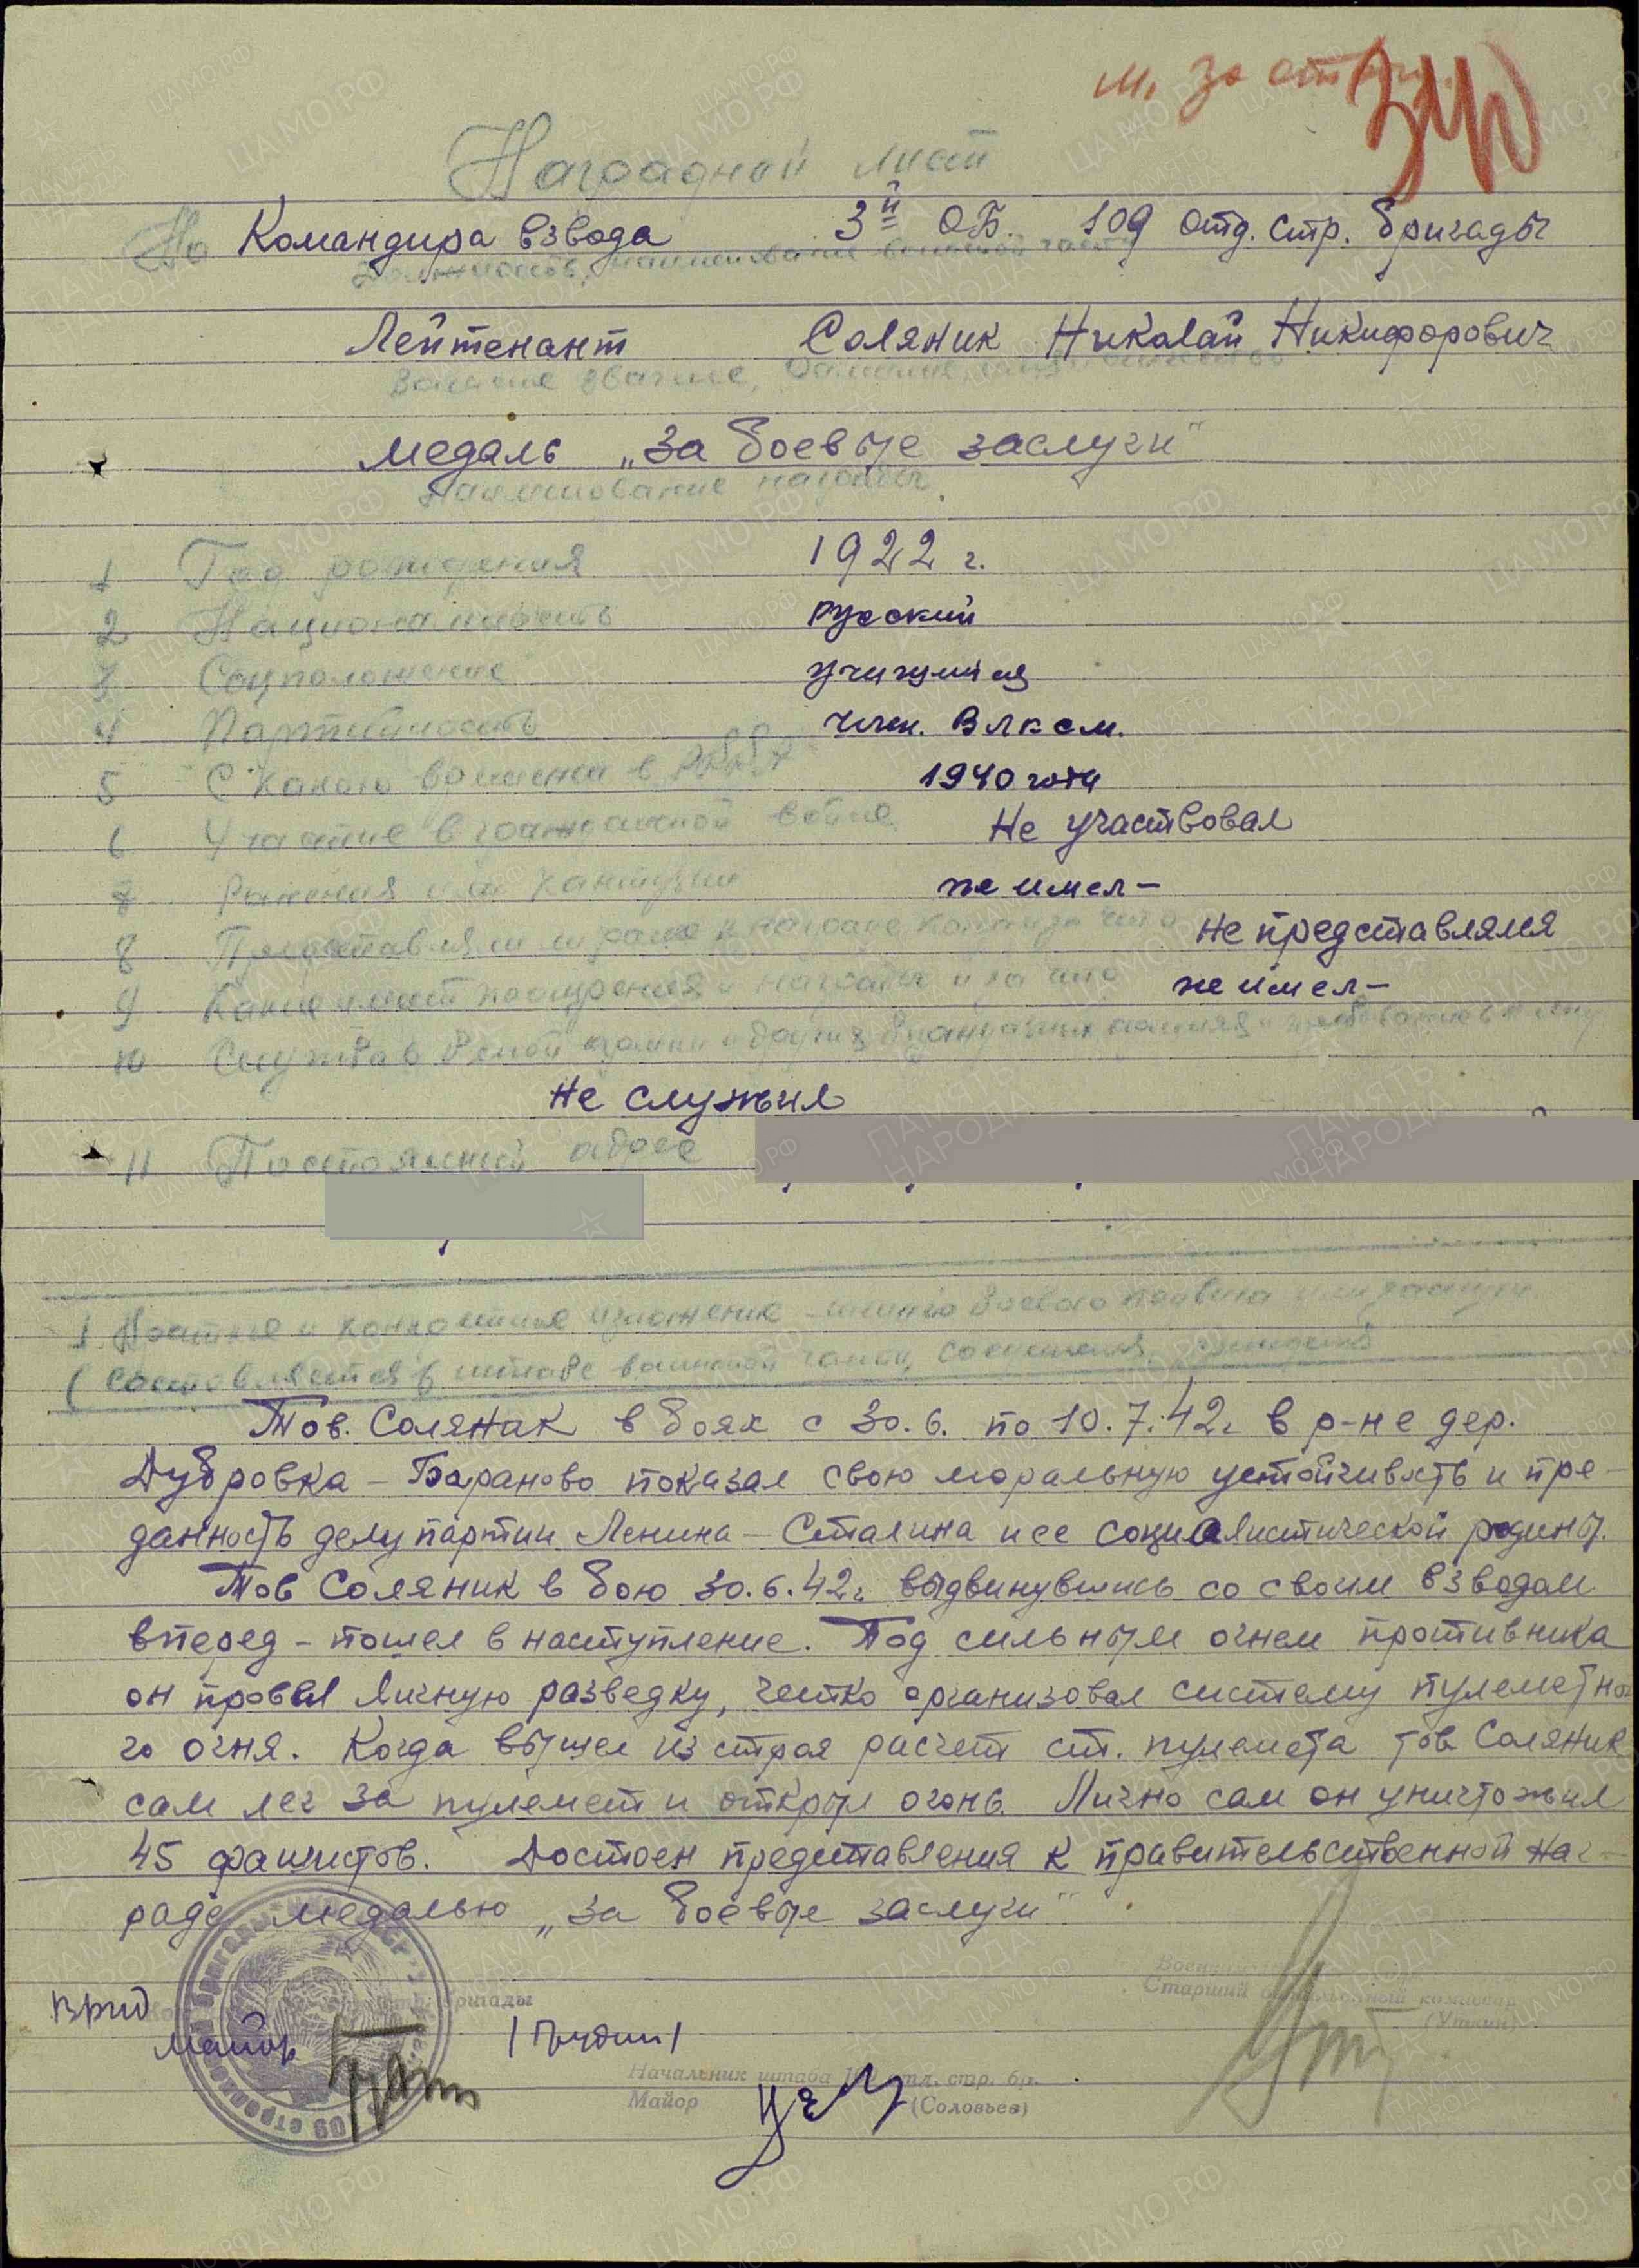 м. за отвагу
340
Наградной лист
На Командира взвода 3й ОБ. 109 отд. стр. бригады
Должность, наименование воинской части
Лейтенант Соляник Николай Никифорович
Военное звание, фамилия, имя и отчество
медаль „За боевые заслуги“
Наименование награды
1 Год рождения 1922 г.
2 Национальность русский
3 Соцположение учащийся
4 Партийность член. ВЛКСМ.
5 С какого времени в РККА 1940 года
6 Участие в гражданской войне Не участвовал
7 Ранения или контузии не имел –
8 Представлялся ли ранее к награде когда за что Не представлялся
9 Какие имеет поощрения и награды и за что не имел –
10 Служба в белой армии и других буржуазных армиях и пребывание в плену
Не служил
11 Постоянный адрес
1 Краткое и конкретное изложение личного боевого подвига или заслуги
(Составляется в штабе воинской части,
Тов. Солянак в боях с 30.6. по 10.7.42г в р-не дер.
Дубровка – Бараново показал свою моральную устойчивость и пре-
данность делу партии Ленина – Сталина и ее социалистической родины.
Тов Соляник в бою 30.6.42г выдвинувшись со своим взводом
вперед – пошел в наступление. Под сильным огнем противника
он провел личную разведку, четко организовал систему пулеметно-
го огня. Когда вышел из строя расчет ст. пулемета тов Соляник
сам лег за пулемет и открыл огонь. Лично сам он уничтожил
45 фашистов. Достоен представления к правительственной наг-
раде медалью „За боевые заслуги“
Врид бригады
майор
Начальник штаба отд. стр. бр.
Майор (Соловьев)
Старший батальонный комиссар
(Уткин)